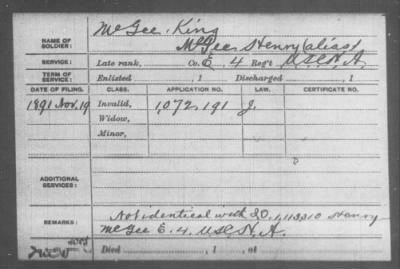 NAME OF SOLDIER: McGee, King
McGee, Henry (alias)
SERVICE: Late rank, Co. E. 4 Reg't U.S.C.H.A.
TERM OF SERVICE: Enlisted , 1 Discharged , 1
DATE OF FILING. CLASS. APPLICATION NO. LAW. CERTIFICATE NO.
1891 Nov. 19 Invalid, 1,072,191 J.
Widow,
Minor,
ADDITIONAL SERVICES:
REMARKS: Not identical with I.O. 1,113,210 Henry
McGee E. 4. U.S.C.H.A.
Died , 1 , at